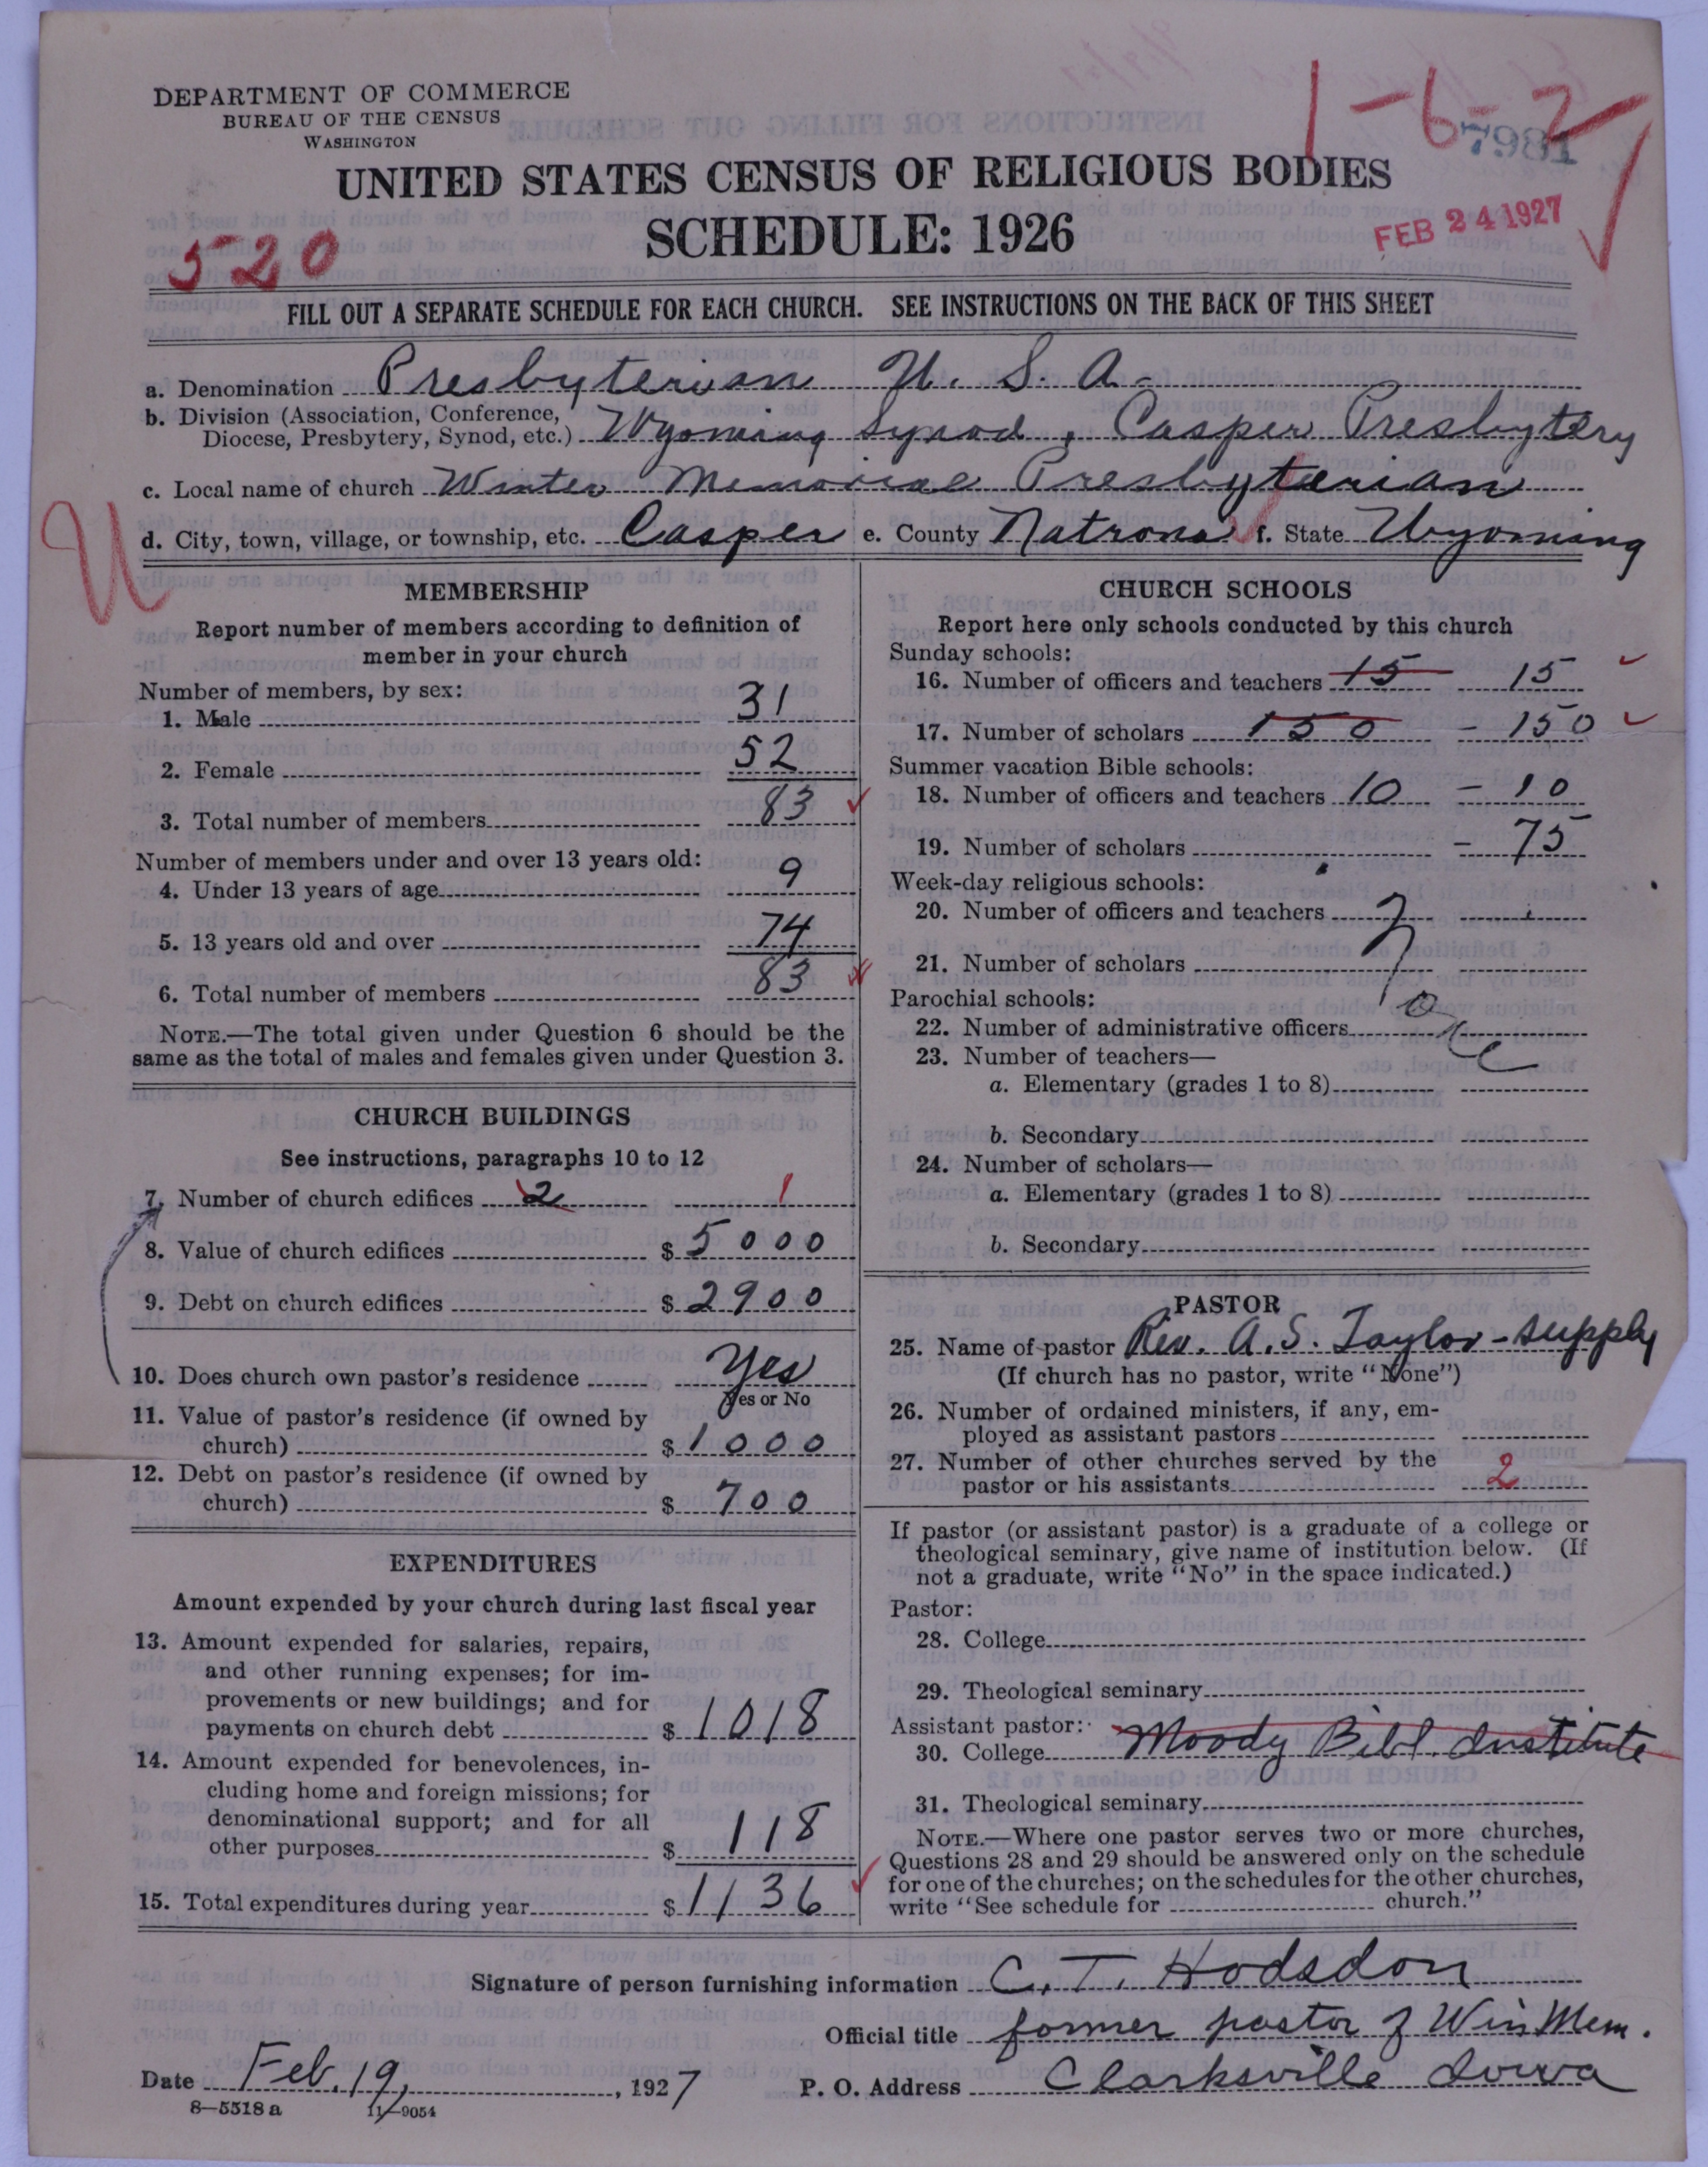 1-6-2
7981
DEPARTMENT OF COMMERCE
BUREAU OF THE CENSUS
WASHINGTON
UNITED STATES CENSUS OF RELIGIOUS BODIES
SCHEDULE: 1926
FEB 24 1927
520
FILL OUT A SEPARATE SCHEDULE FOR EACH CHURCH. SEE INSTRUCTIONS ON THE BACK OF THIS SHEET
a. Denomination Presbyterian U. S. A.
b. Division (Association, Conference,
Diocese, Presbytery, Synod, etc.) Wyoming Synod, Casper Presbytery
c. Local name of church Winter Memorial Presbyterian
U
d. City, town, village, or township, etc. Casper e. County Natrona f. State Wyoming
MEMBERSHIP
Report number of members according to definition of
member in your church
Number of members, by sex:
1. Male 31
2. Female 52
3. Total number of members 83
Number of members under and over 13 years old:
4. Under 13 years of age 9
5. 13 years old and over 74
6. Total number of members 83
NOTE.—The total given under Question 6 should be the
same as the total of males and females given under Question 3.
CHURCH BUILDINGS
See instructions, paragraphs 10 to 12
7. Number of church edifices 2 1
8. Value of church edifices $ 5000
9. Debt on church edifices $ 2900
10. Does church own pastor's residence Yes
Yes or No
11. Value of pastor's residence (if owned by
church) $ 1000
12. Debt on pastor's residence (if owned by
church) $ 700
EXPENDITURES
Amount expended by your church during last fiscal year
13. Amount expended for salaries, repairs,
and other running expenses; for im-
provements or new buildings; and for
payments on church debt $ 1018
14. Amount expended for benevolences, in-
cluding home and foreign missions; for
denominational support; and for all
other purposes $ 118
15. Total expenditures during year $ 1136
CHURCH SCHOOLS
Report here only schools conducted by this church
Sunday schools:
16. Number of officers and teachers 15 15
17. Number of scholars 150 - 150
Summer vacation Bible schools:
18. Number of officers and teachers 10 - 10
19. Number of scholars - 75
Week-day religious schools:
20. Number of officers and teachers
21. Number of scholars
Parochial schools:
22. Number of administrative officers
23. Number of teachers—
a. Elementary (grades 1 to 8)
b. Secondary
24. Number of scholars—
a. Elementary (grades 1 to 8)
b. Secondary
PASTOR
25. Name of pastor Rev. A. S. Taylor - supply
(If church has no pastor, write "None")
26. Number of ordained ministers, if any, em-
ployed as assistant pastors
27. Number of other churches served by the
pastor or his assistants 2
If pastor (or assistant pastor) is a graduate of a college or
theological seminary, give name of institution below. (If
not a graduate, write "No" in the space indicated.)
Pastor:
28. College
29. Theological seminary
Assistant pastor:
30. College Moody Bibl. Institute
31. Theological seminary
NOTE.—Where one pastor serves two or more churches,
Questions 28 and 29 should be answered only on the schedule
for one of the churches; on the schedules for the other churches,
write "See schedule for church."
Signature of person furnishing information C. T. Hodsdon
Official title former pastor of Win Mem.
Date Feb. 19, 1927 P. O. Address Clarksville Iowa
8—5518 a 11—9054